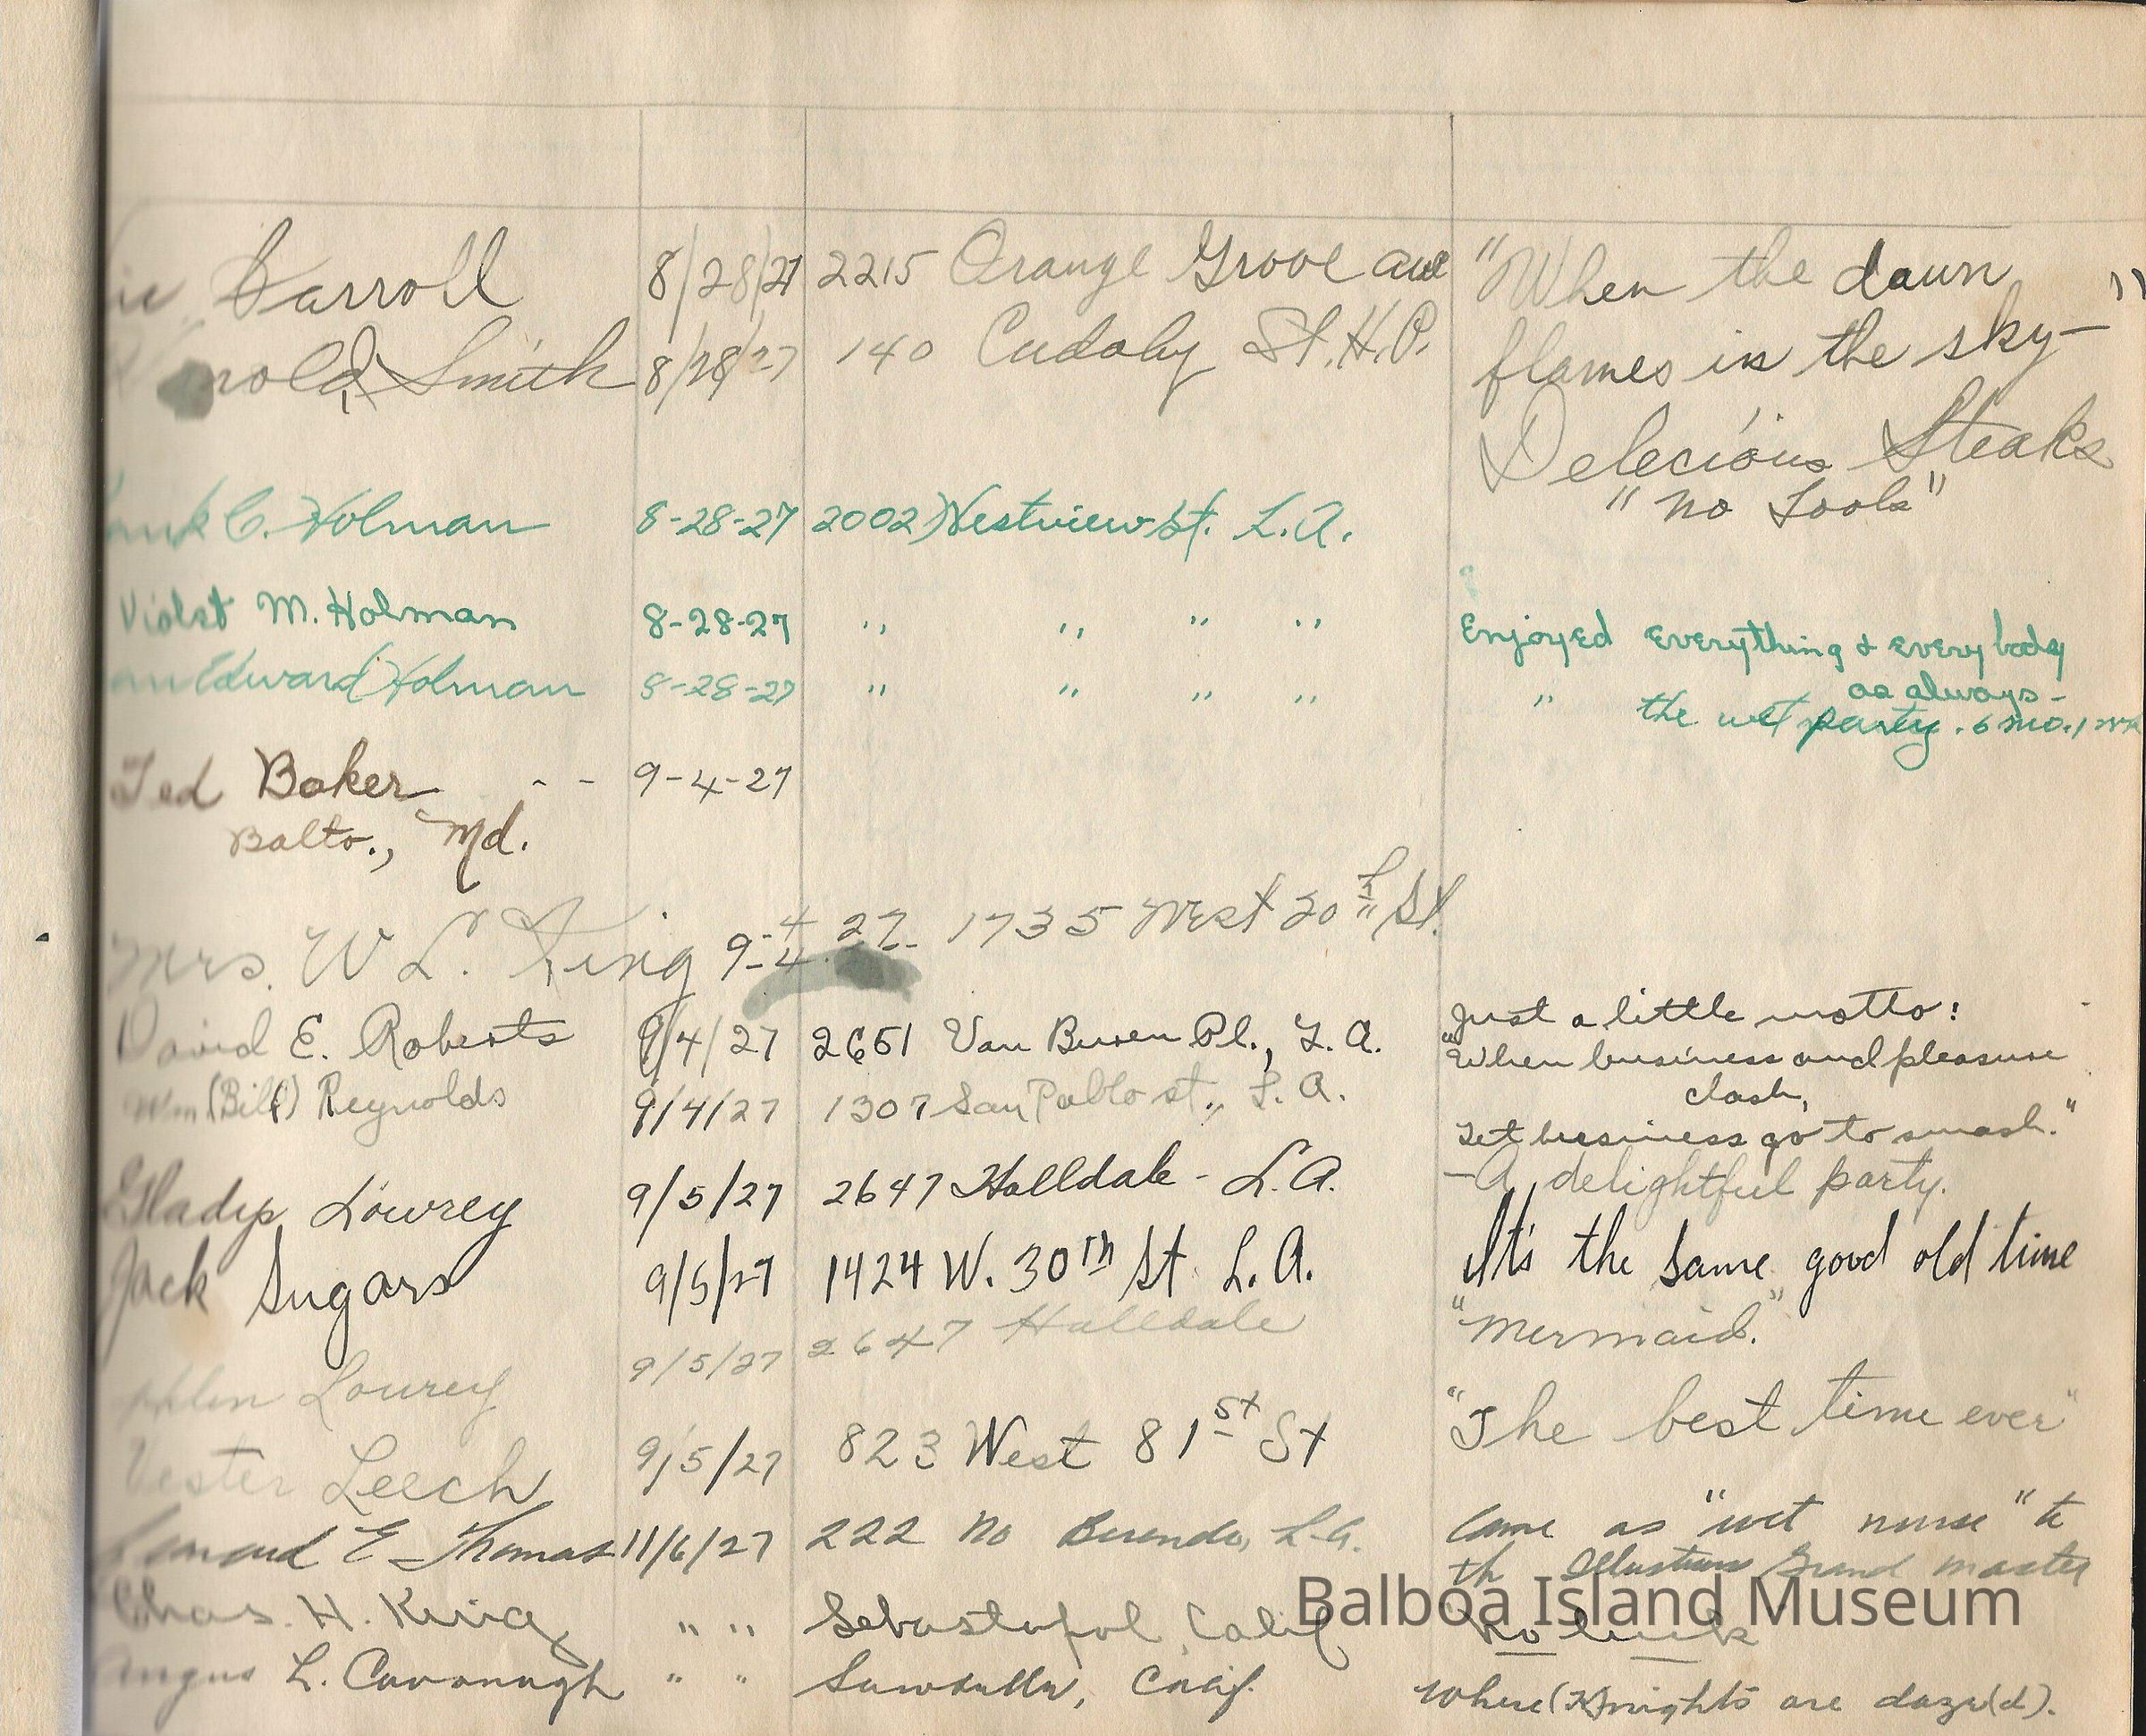 Carroll 8/28/27 2215 Orange Grove ave "When the dawn
Smith 8/28/27 140 Cudahy St. H.P. flames in the sky— "
Delecious Steaks
"No Fools"
C. Holman 8-28-27 2002 Westview St. L.A.
Violet M. Holman 8-28-27 " " " " Enjoyed Everything & everybody
as always -
Edward Holman 8-28-27 " " " " " the wet party. 6 mo. 1 wk
Ted Baker - - 9-4-27
Balto., Md.
Mrs. W L. King 9-4-27 1735 West 20th St.
David E. Roberts 9/4/27 2651 Van Buren Pl., L.A. Just a little motto:
"When business and pleasure
clash,
Wm (Bill) Reynolds 9/4/27 1307 San Pablo st., L.A. Let business go to smash."
Gladys Lowrey 9/5/27 2647 Halldale - L.A. —A delightful party.
Jack Sugars 9/5/27 1424 W. 30TH St. L.A. It's the same good old time
Lowrey 9/5/27 2647 Halldale "Mermaid."
Vester Leech 9/5/27 823 West 81st St "The best time ever"
E Thomas 11/6/27 222 No Berendo, L.A. Came as "wet nurse" to
th Illustrious Grand Master
Chas. H. King " " Sebastopol, Calif No luck
Angus L. Cavanagh " " Sawtelle, Calif. Where (K)nights are daze(d).
Balboa Island Museum